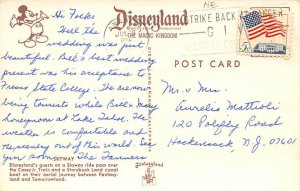 Hi Folks
Well the
wedding was just
beautiful. Bill's best wedding
present was his acceptance to
Fresno State College. We are now
being tourists while Bill & Mary
honeymoon at Lake Tahoe. The
weather is comfortable and
Heavenly out of this world. See
you soon. The
Disneyland
THE MAGIC KINGDOM
STRIKE BACK
GIVE
5c
POST CARD
Mr. & Mrs.
Aurelio Mattioli
120 Polifly Road
Hackensack, N.J. 07601
SKYWAY
Disneyland's guests on a Skyway ride pass over
the Casey Jr. Train and a Storybook Land canal
boat on their aerial journey between Fantasy-
land and Tomorrowland.